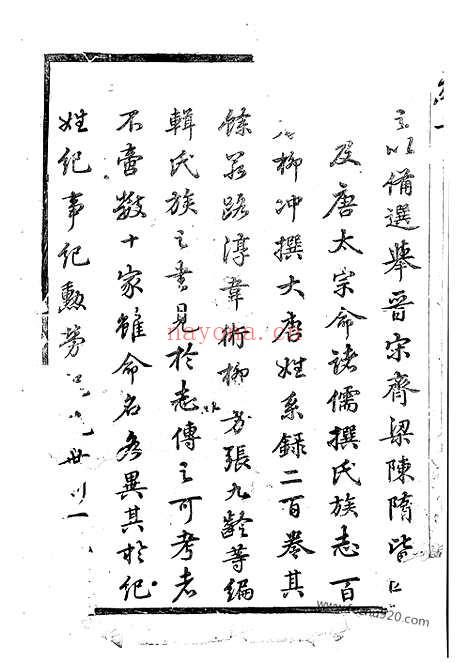 以備選舉晋宋齊梁陳隋皆
及唐太宗命諸儒撰氏族志百
柳冲撰大唐姓系録二百卷其
餘若路淳韋術柳芳張九齡等編
輯氏族之書見於志傳之可考者
不啻數十家雖命名各異其於紀
姓紀事紀勲勞
nayona.cn